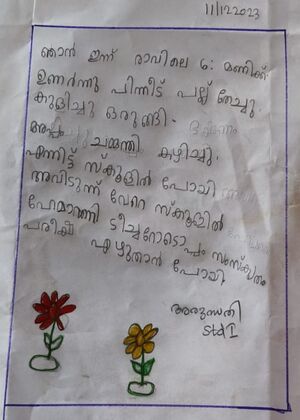 11/12/2023
ഞാൻ ഇന്ന് രാവിലെ 6: മണിക്ക്
ഉണർന്നു പിന്നീട് പല്ല് തേച്ചു.
കുളിച്ചു ഒരുങ്ങി.
ചമ്മന്തി കഴിച്ചു.
എന്നിട്ട് സ്കൂളിൽ പോയി
അവിടുന്ന് വേറെ സ്കൂളിൽ
ഹേമാറാണി ടീച്ചറോടൊപ്പം സംസ്കൃതം
പരീക്ഷ എഴുതാൻ പോയി.
അരുന്ധതി
std I